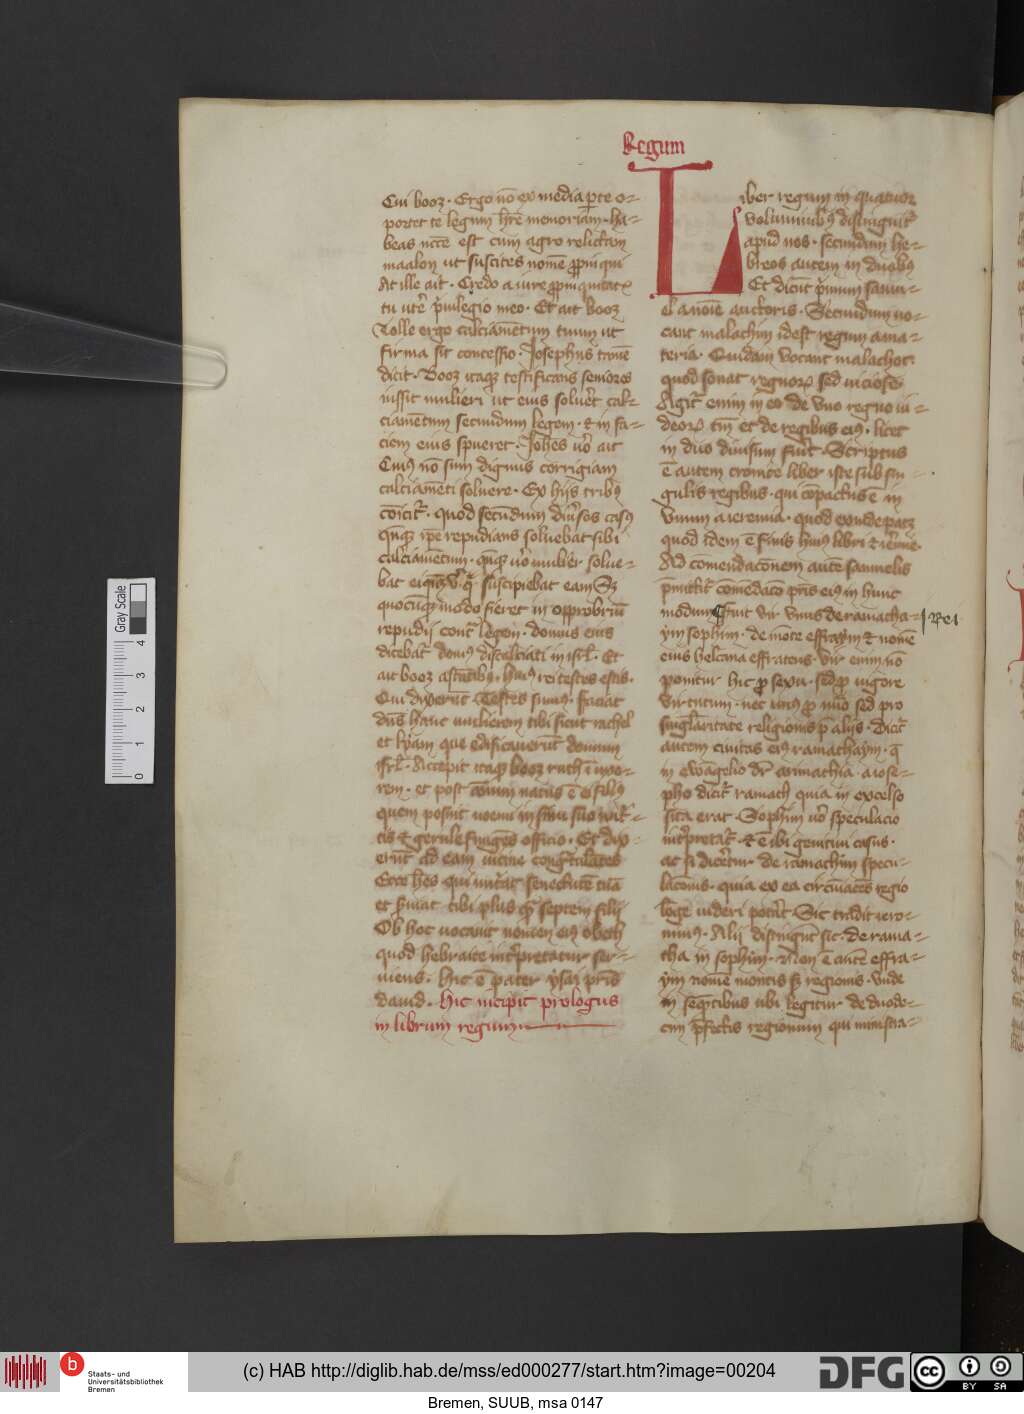 Regum
Cui booz · Ergo nō ex media pͥte o⸗
portet te legum hr̄e memoriam · ha⸗
beas nc̄c̄e est cum agro relictam
maalon ut suscites nomē ꝓpinqui
At ille ait · Credo a iure ꝓpinquitatꝭ
tu ut'e p̄uilegio meo · Et ait booz
Tolle ergo calciam̄etum tuum ut
firma sit concessio · Josephus tamē
dicit · Booz itaqꝫ testificans seniores
iussit mulieri ut eius solu'et cal⸗
ciam̄etum secundum legem · ⁊ in fa⸗
ciem eius spueret · Joh̄es u'o ait
Cuiꝰ nō sum dignus corrigiam
calciam̄eti soluere · Ex hijs tribꝰ
cōicit' · quod secūdum diu'sos casꝰ
qn̄qꝫ ip̄e repudians soluebat sibi
calciam̄etum · qn̄qꝫ u'o mulier solue⸗
bat ei suscipiebat eam Sꝫ
quocūqꝫ modo fieret in opprobriū
repudij cont' legem · domus eius
dicebat' domꝰ discalciati in isrl̄ · Et
ait booz astātibꝰ · huiꝰ rei testes estis ·
Qui dixerūt Testes sumꝰ · faciat
dn̄s hanc mulierem tibi sicut rachel
et lyam que edificauerūt domum
isrl̄ · Accepit itaqꝫ booz ruth ī uxo⸗
rem · et post annum natus ē ei filiꝰ
quem posuit noemi in sinu suo nut'⸗
cis ⁊ gerule fūgēs officio · Et dix⸗
erūt ad eam uicine congr̄tulātes
Ecce h̄es qui nut'at senectutē tuā
et s'uiat tibi plus q̄ꝫ septem filij
Ob hoc uocauit nomen eiꝰ obeth
quod hebraice int'pretatur ser⸗
uiens · hic ē pater ysai pr̄is
dauid · hic incipit prologus
in librum regum
Liber regum in quatuor
voluminibꝰ distinguit'
apud nos · secundum he⸗
breos autem in duobꝰ
Et dicūt p'mum samu⸗
el a noīe auctoris · Secundum uo⸗
cant malachim idest regum a ma⸗
teria · Quidam vocant malachot
quod sonat regnorꝝ sed uiciose
Agit' enim in eo de vno regno iu⸗
deorꝝ tm̄ et de regibus eiꝰ · licet
in duo diuisum fuit' · Scriptus
ē autem cronice liber iste sub sin⸗
gulis regibus · qui cōpactus ē in
vnum a ieremia · quod exinde patꝫ
quod idem ē finis huiꝰ libri ⁊ ier̄mie
Ad cōmendacōnem autē samuelis
p̄mittit' cōmēdacō pr̄is eiꝰ in hunc
modum Fuit vir vnus de ramatha⸗
ym sophim · de mōte effraym ⁊ nomē
eius helcana effrateus · vir enim nō
ponitur hic ꝓ sexu · sed ꝓ uigore
virtutum · nec unꝰ ꝓ nūo sed pro
singl̄aritate religionis p̄ alijs · dicit'
autem ciuitas eiꝰ ramathaym · q̄
in ewāgelio dr̄ arimathia · a iose⸗
pho dicit' ramath quia in excelso
sita erat · Sophim u'o speculacio
int'pretat' · ⁊ ē ibi genitiui casus ·
ac si dicet'ur de ramathim specu⸗
lacōnis · quia ex ea circūiacēs regio
lōge uideri pot'it Sic tradit iero⸗
nimꝰ · Alij distingūt sic · de rama⸗
tha in sophim · Non ē autē effra⸗
ym nomē montis sꝫ regionis · vnde
in seq̄ntibus ubi legitur de duode⸗
cim p̄fectis regionum qui ministra⸗
j Re 1
Gray Scale
0 1 2 3 4
b
Staats- und
Universitätsbibliothek
Bremen
(c) HAB http://diglib.hab.de/mss/ed000277/start.htm?image=00204
DFG
cc BY SA
Bremen, SUUB, msa 0147